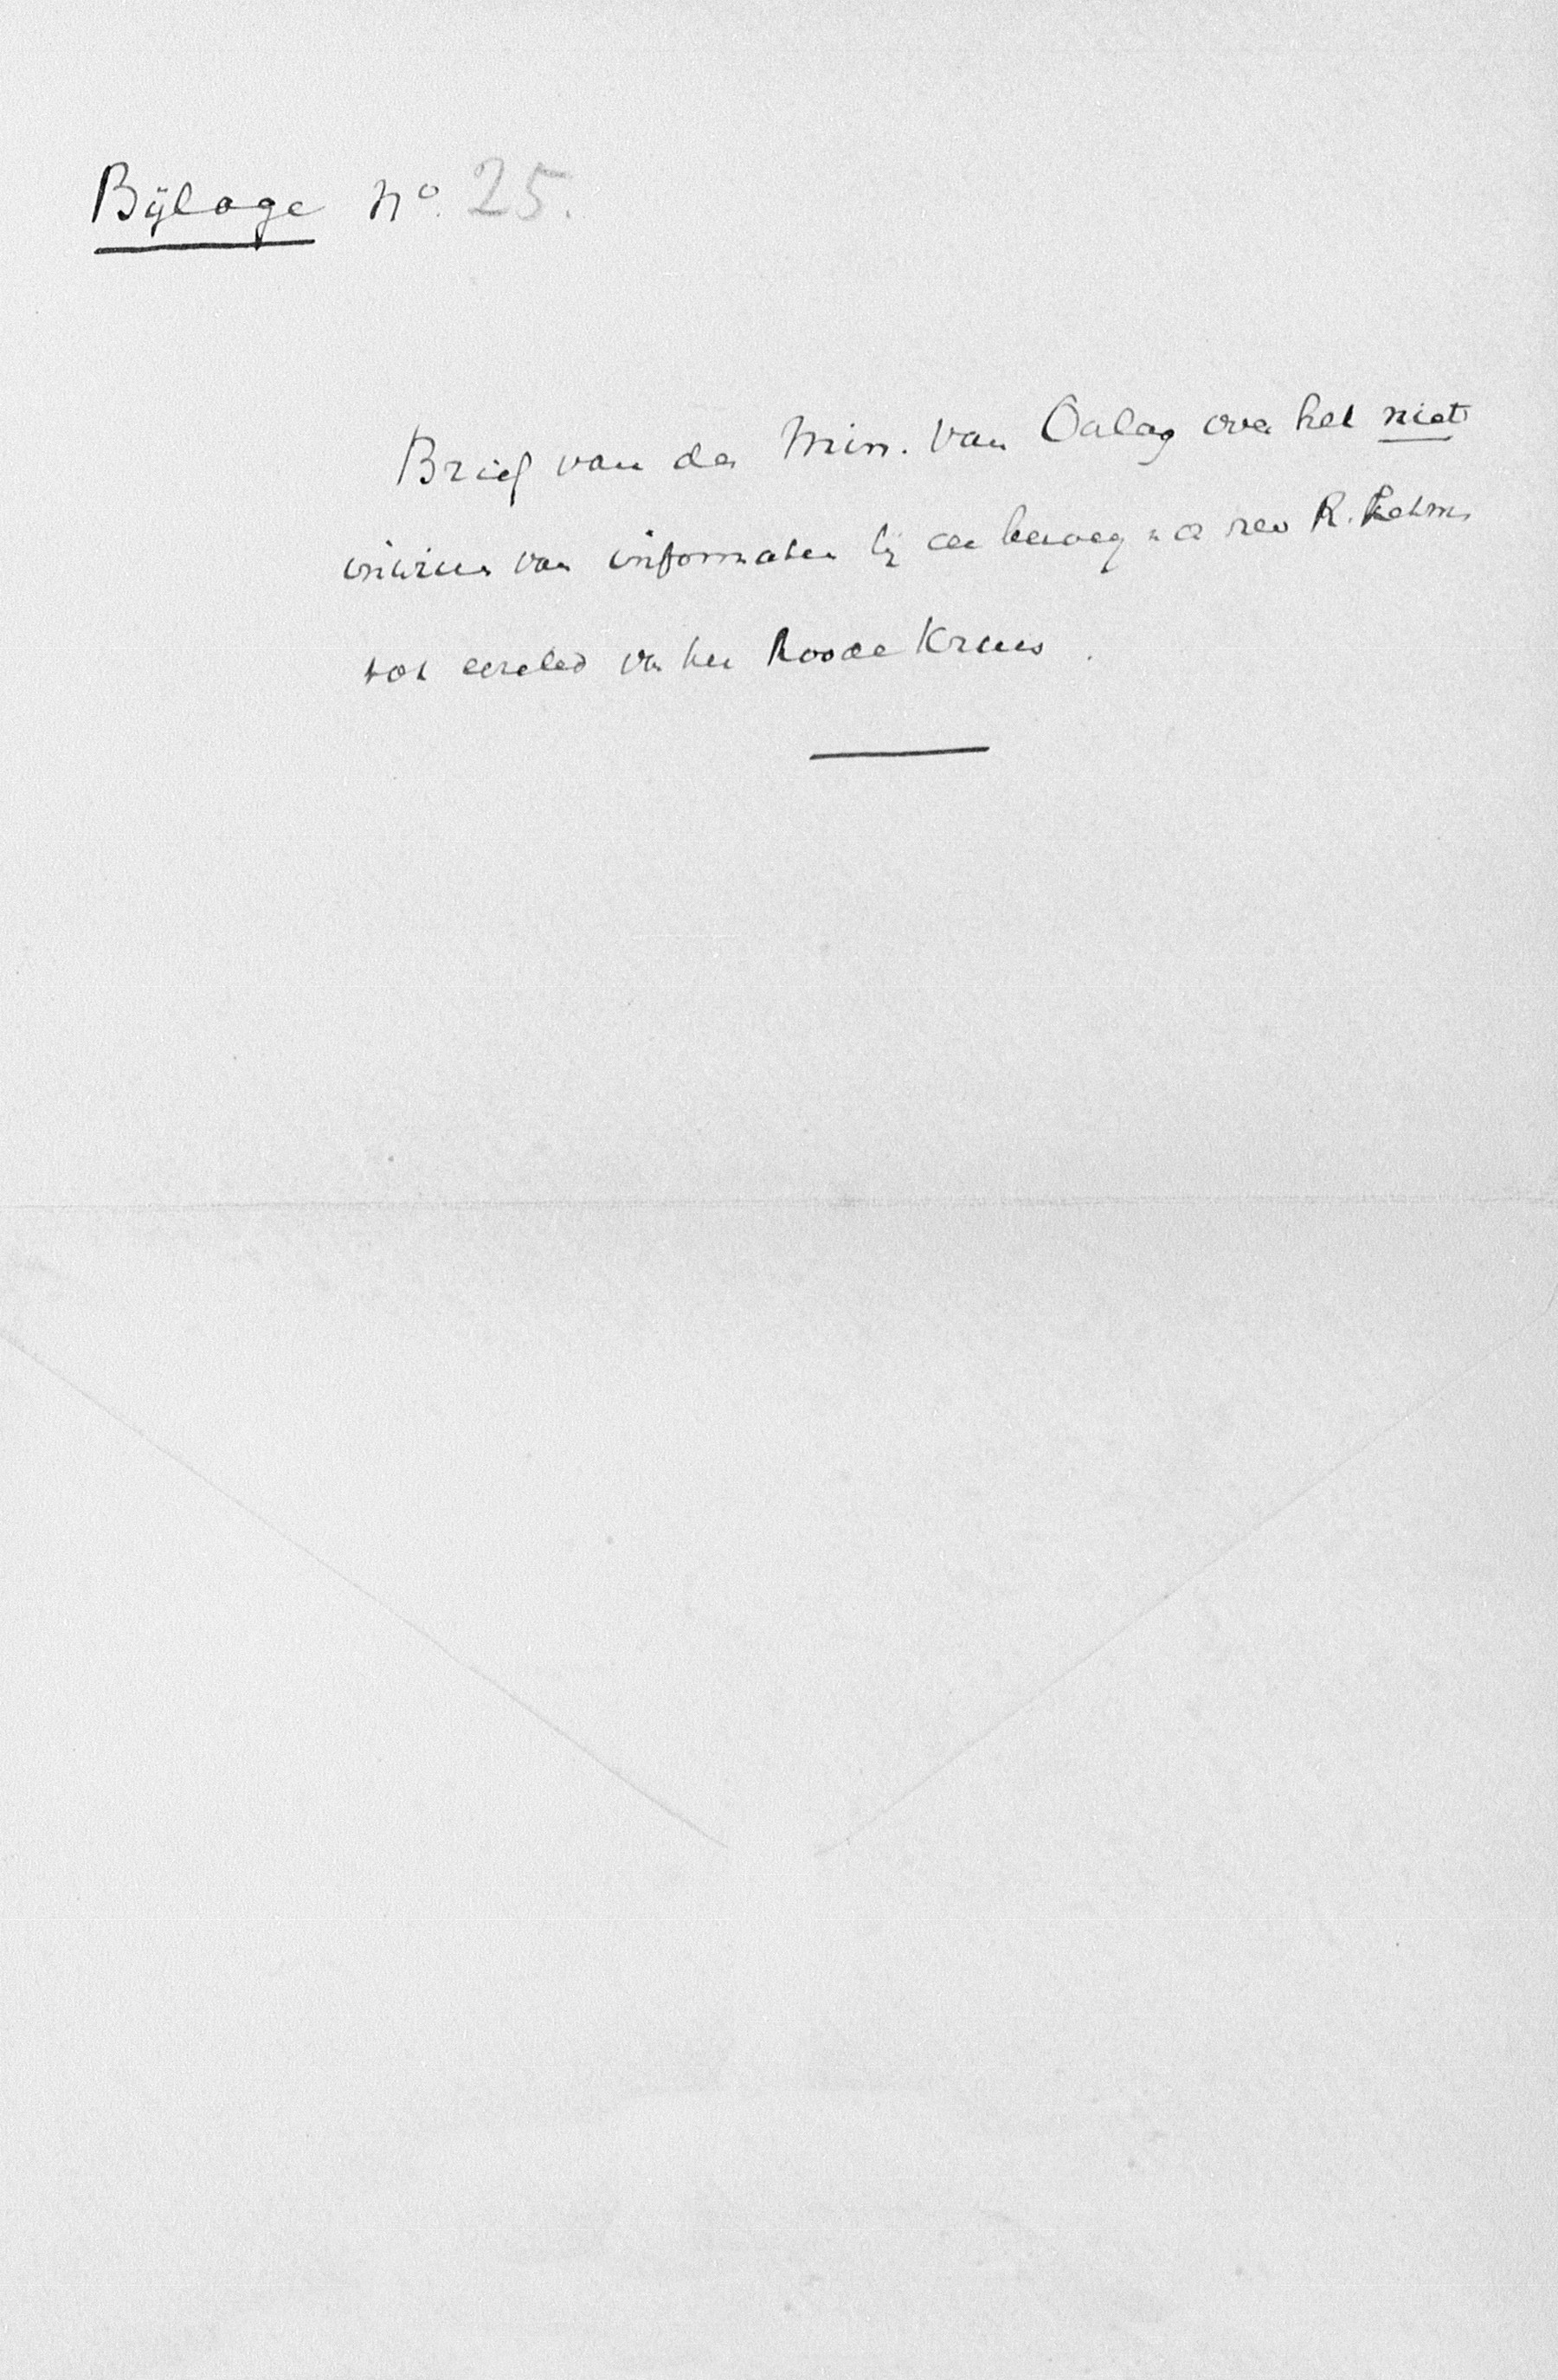 Bijlage No. 25.
Brief van den Min. van Oorlog over het niet
inwinnen van informaten bij de benoeming van R. Lehm
tot eerelid van het Roode Kruis.